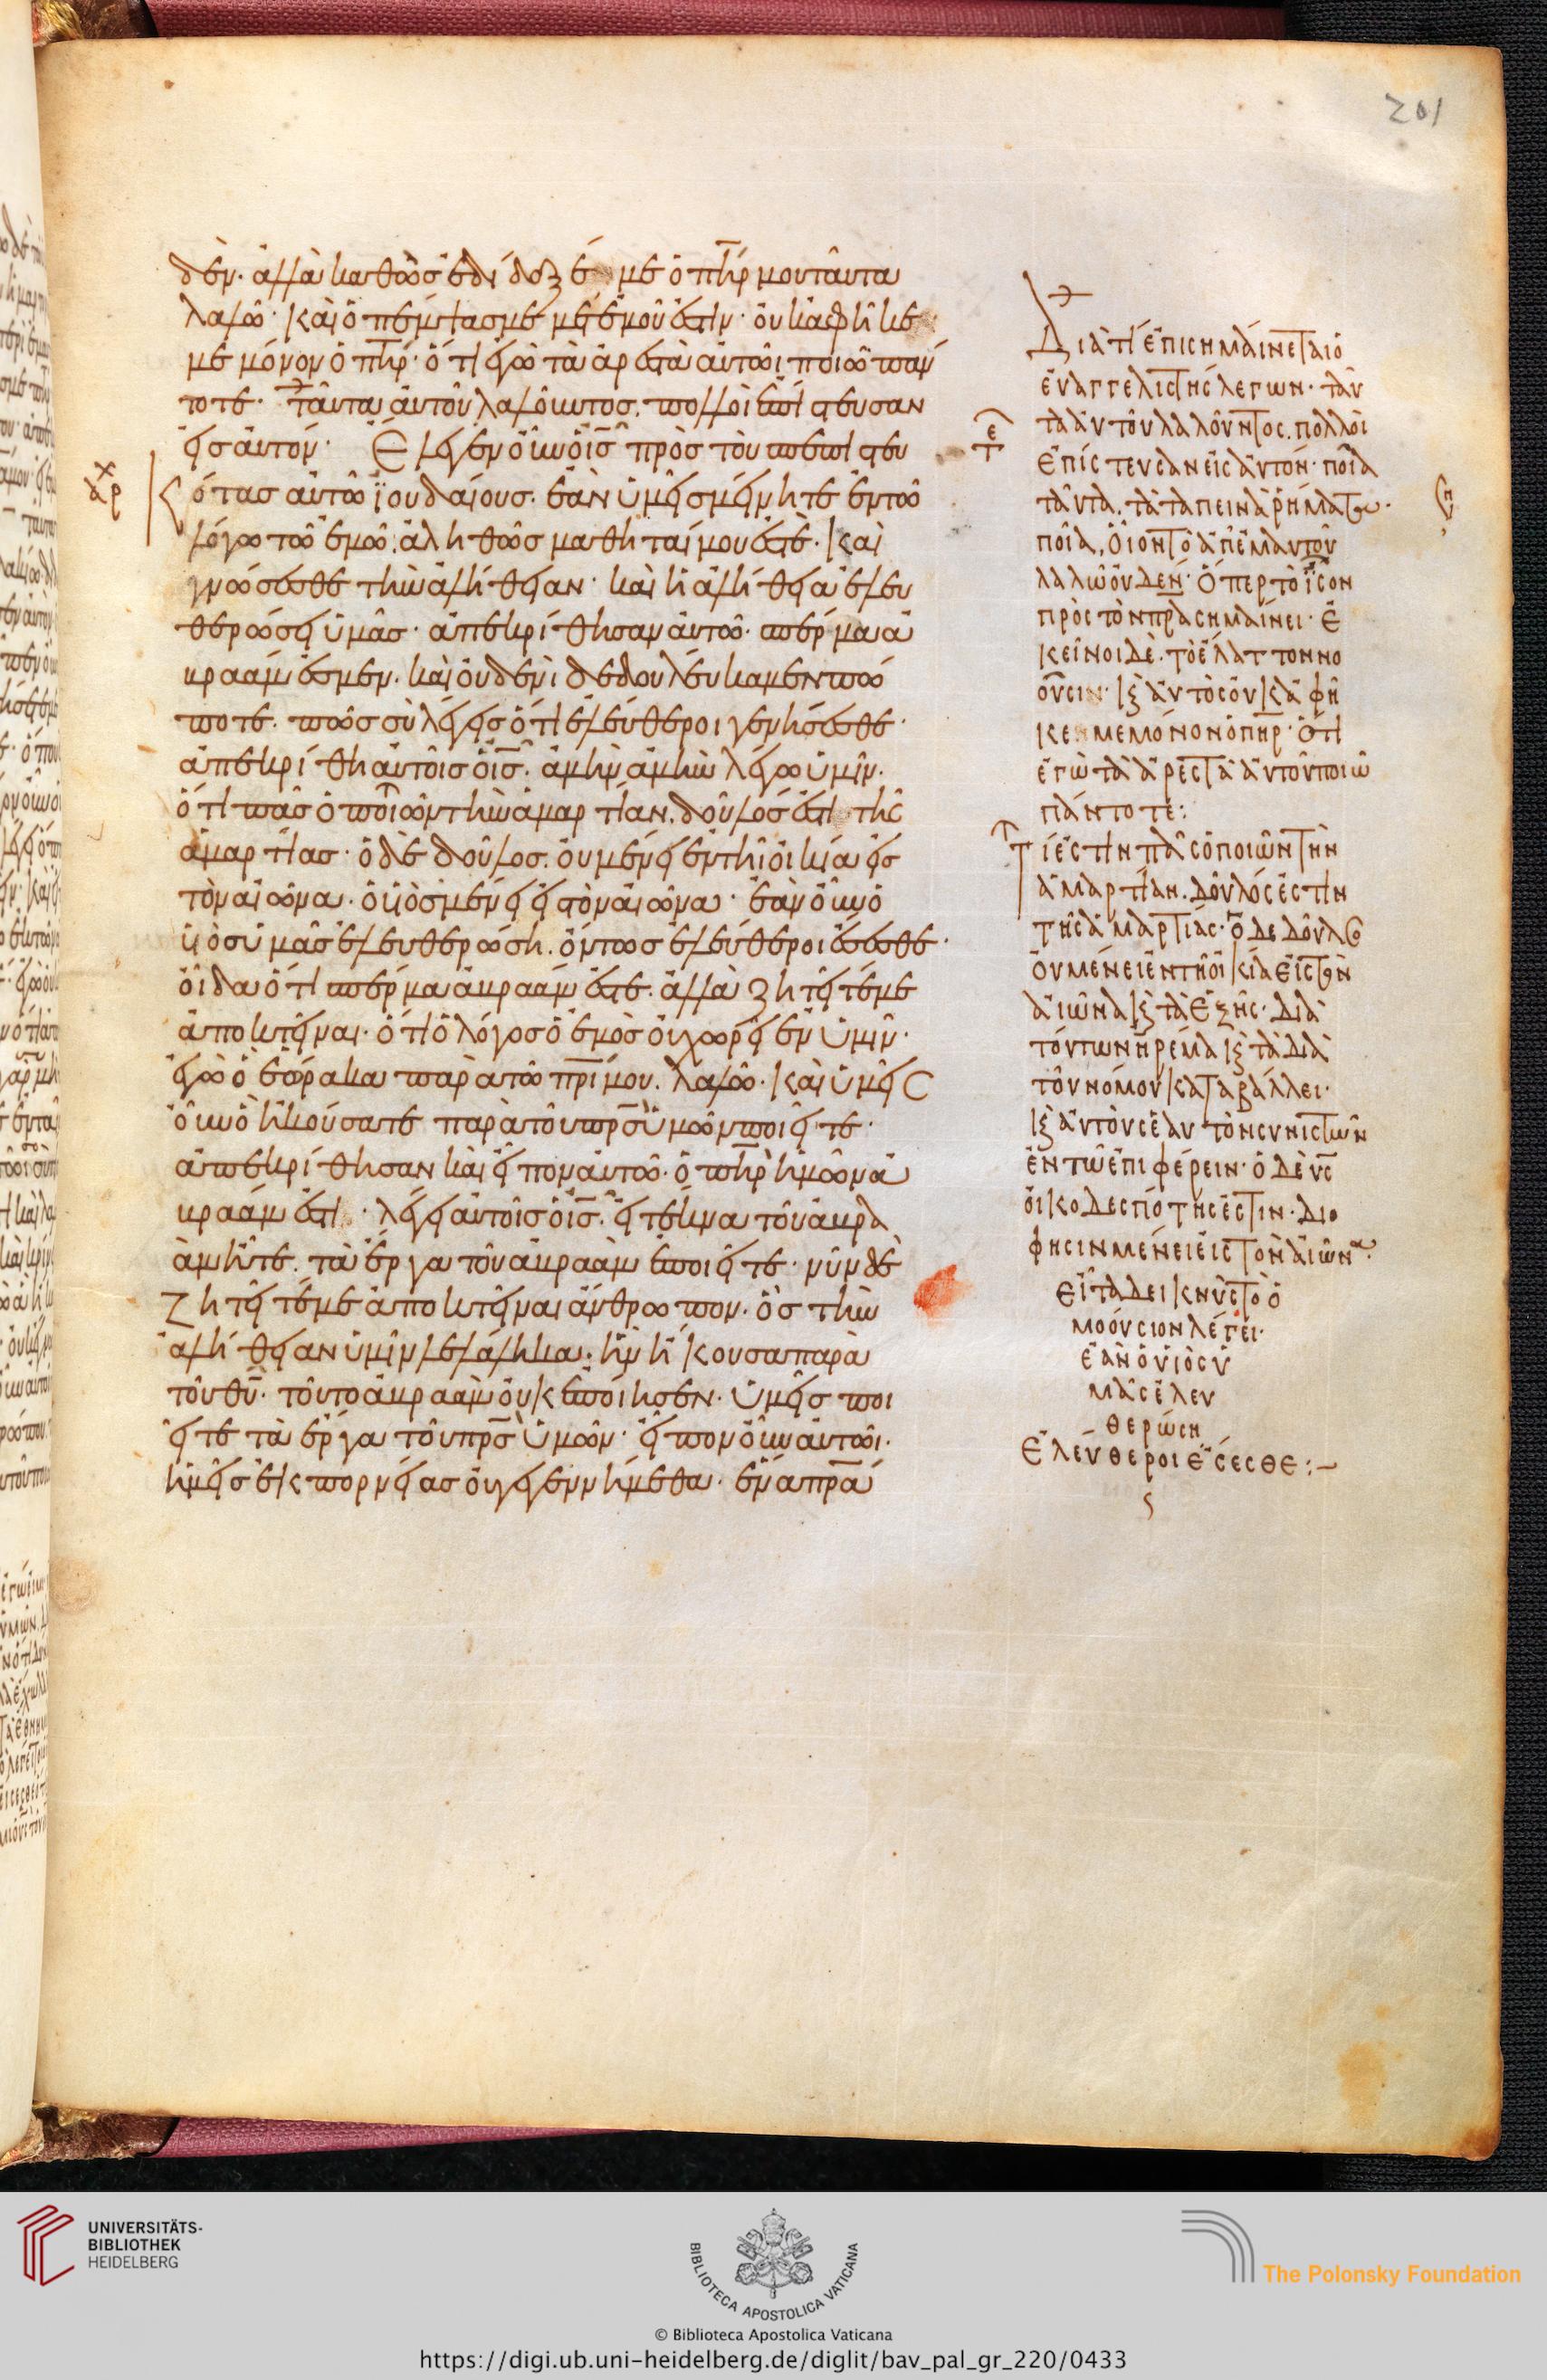 δὲν· ἀλλὰ καθὼς ἐδίδαξέ με ὁ π̅η̅ρ̅ μου ταῦτα
λαλῶ· καὶ ὁ πέμψας με μετ' ἐμοῦ ἐστιν· οὐκ ἀφῆκε
με μόνον ὁ π̅η̅ρ̅· ὅτι ἐγὼ τὰ ἀρεστὰ αὐτῶι ποιῶ πάν
τοτε· ταῦτα αὐτοῦ λαλοῦντος. πολλοὶ ἐπίστευσαν
εἰς αὐτόν· Ἔλεγεν οὖν ὁ ι̅ς̅ πρὸς τοὺς πεπιστευ
κότας αὐτῶ ϊουδαίους· ἐὰν ὑμεῖς μείνητε ἐν τῶ
λόγω τῶ ἐμῶ· ἀληθῶς μαθηταί μου ἐστὲ· καὶ
γνώσεσθε τὴν ἀλήθειαν· καὶ ἡ ἀλήθεια ἐλευ
θερώσει ὑμᾶς· ἀπεκρίθησαν αὐτῶ· σπέρμα ἀ
βραάμ ἐσμεν· καὶ οὐδενὶ δεδουλεύκαμεν πώ
ποτε· πῶς σὺ λέγεις ὅτι ἐλεύθεροι γενήσεσθε·
ἀπεκρίθη αὐτοῖς ὁ ι̅ς̅· ἀμὴν ἀμὴν λέγω ὑμῖν·
ὅτι πᾶς ὁ ποιῶν τὴν ἁμαρτίαν. δοῦλός ἐστι τῆς
ἁμαρτίας· ὁ δὲ δοῦλος. οὐ μένει ἐν τῆι οἰκία εἰς
τὸν αἰῶνα· ὁ υἱὸς μένει εἰς τὸν αἰῶνα· ἐὰν οὖν ὁ
υἱὸς ὑμᾶς ἐλευθερώση. ὄντως ἐλεύθεροι ἔσεσθε·
οἶδα ὅτι σπέρμα ἀβραάμ ἐστε· ἀλλὰ ζητεῖτέ με
ἀποκτεῖναι· ὅτι ὁ λόγος ὁ ἐμὸς οὐ χωρεῖ ἐν ὑμῖν·
ἐγὼ ὃ ἑώρακα παρὰ τῶ π̅ρ̅ι̅ μου. λαλῶ· καὶ ὑμεῖς
οὖν ὃ ἠκούσατε παρὰ τοῦ π̅ρ̅ς̅ ὑμῶν ποιεῖτε·
ἀπεκρίθησαν καὶ εἶπον αὐτῶ· ὁ π̅η̅ρ̅ ἡμῶν ἀ
βραάμ ἐστι· λέγει αὐτοῖς ὁ ι̅ς̅· εἰ τέκνα τοῦ ἀβρα
ὰμ ἦτε. τὰ ἔργα τοῦ ἀβραὰμ ἐποιεῖτε· νῦν δὲ
ζητεῖτέ με ἀποκτεῖναι ἄνθρωπον· ὃς τὴν
ἀλήθειαν ὑμῖν λελάληκα· ἣν ἤκουσα παρὰ
τοῦ θ̅υ̅· τοῦτο ἀβραὰμ οὐκ ἐποίησεν· ὑμεῖς ποι
εῖτε τὰ ἔργα τοῦ π̅ρ̅ς̅ ὑμῶν· εἶπον οὖν αὐτῶι·
ἡμεῖς ἐκ πορνείας οὐ γεγεννήμεθα· ἕνα π̅ρ̅α̅
Διατί ἐπισημαίνεται ὁ
εὐαγγελιστὴς λέγων· ταῦ
τα αὐτοῦ λαλοῦντος. πολλοὶ
ἐπίστευσαν εἰς αὐτόν· ποῖα
ταῦτα. τὰ ταπεινὰ ῥήματα·
ποῖα, οἷον τὸ ἀπ' ἐμαυτοῦ
λαλῶ οὐδέν· ὅπερ τὸ ἴσον
πρὸς τὸν π̅ρ̅α̅ σημαίνει· ἐ
κεῖνοι δὲ. τὸ ἔλαττον νο
οῦσιν· κ αὐτὸς οὐκ ἀφῆ
κε με μόνον ὁ π̅η̅ρ̅· ὅτι
ἐγὼ τὰ ἀρεστὰ αὐτοῦ ποιῶ
πάντοτε:
Τί ἐστιν πᾶς ὁ ποιῶν τὴν
ἁμαρτίαν. δοῦλός ἐστιν
τῆς ἁμαρτίας· ὁ δὲ δοῦλος
οὐ μένει ἐν τῆ οἰκία εἰς τὸν
αἰῶνα κ τὰ ἑξῆς· διὰ
τούτων ἠρέμα κ τὰ διὰ
τοῦ νόμου καταβάλλει·
κ αὐτοὺς ἑαυτὸν συνιστῶν
ἐν τῶ ἐπιφέρειν· ὁ δὲ υ̅ς̅
οἰκοδεσπότης ἐστίν· διό
φησιν μένει εἰς τὸν αἰῶνα·
εἶτα δεικνὺς τὸ ὁ
μοούσιον λέγει·
ἐὰν ὁ υἱὸς ὑ
μᾶς ἐλευ
θερώση
ἐλεύθεροι ἔσεσθε:-
201
UNIVERSITÄTS-
BIBLIOTHEK
HEIDELBERG
BIBLIOTECA APOSTOLICA VATICANA
© Biblioteca Apostolica Vaticana
The Polonsky Foundation
https://digi.ub.uni-heidelberg.de/diglit/bav_pal_gr_220/0433